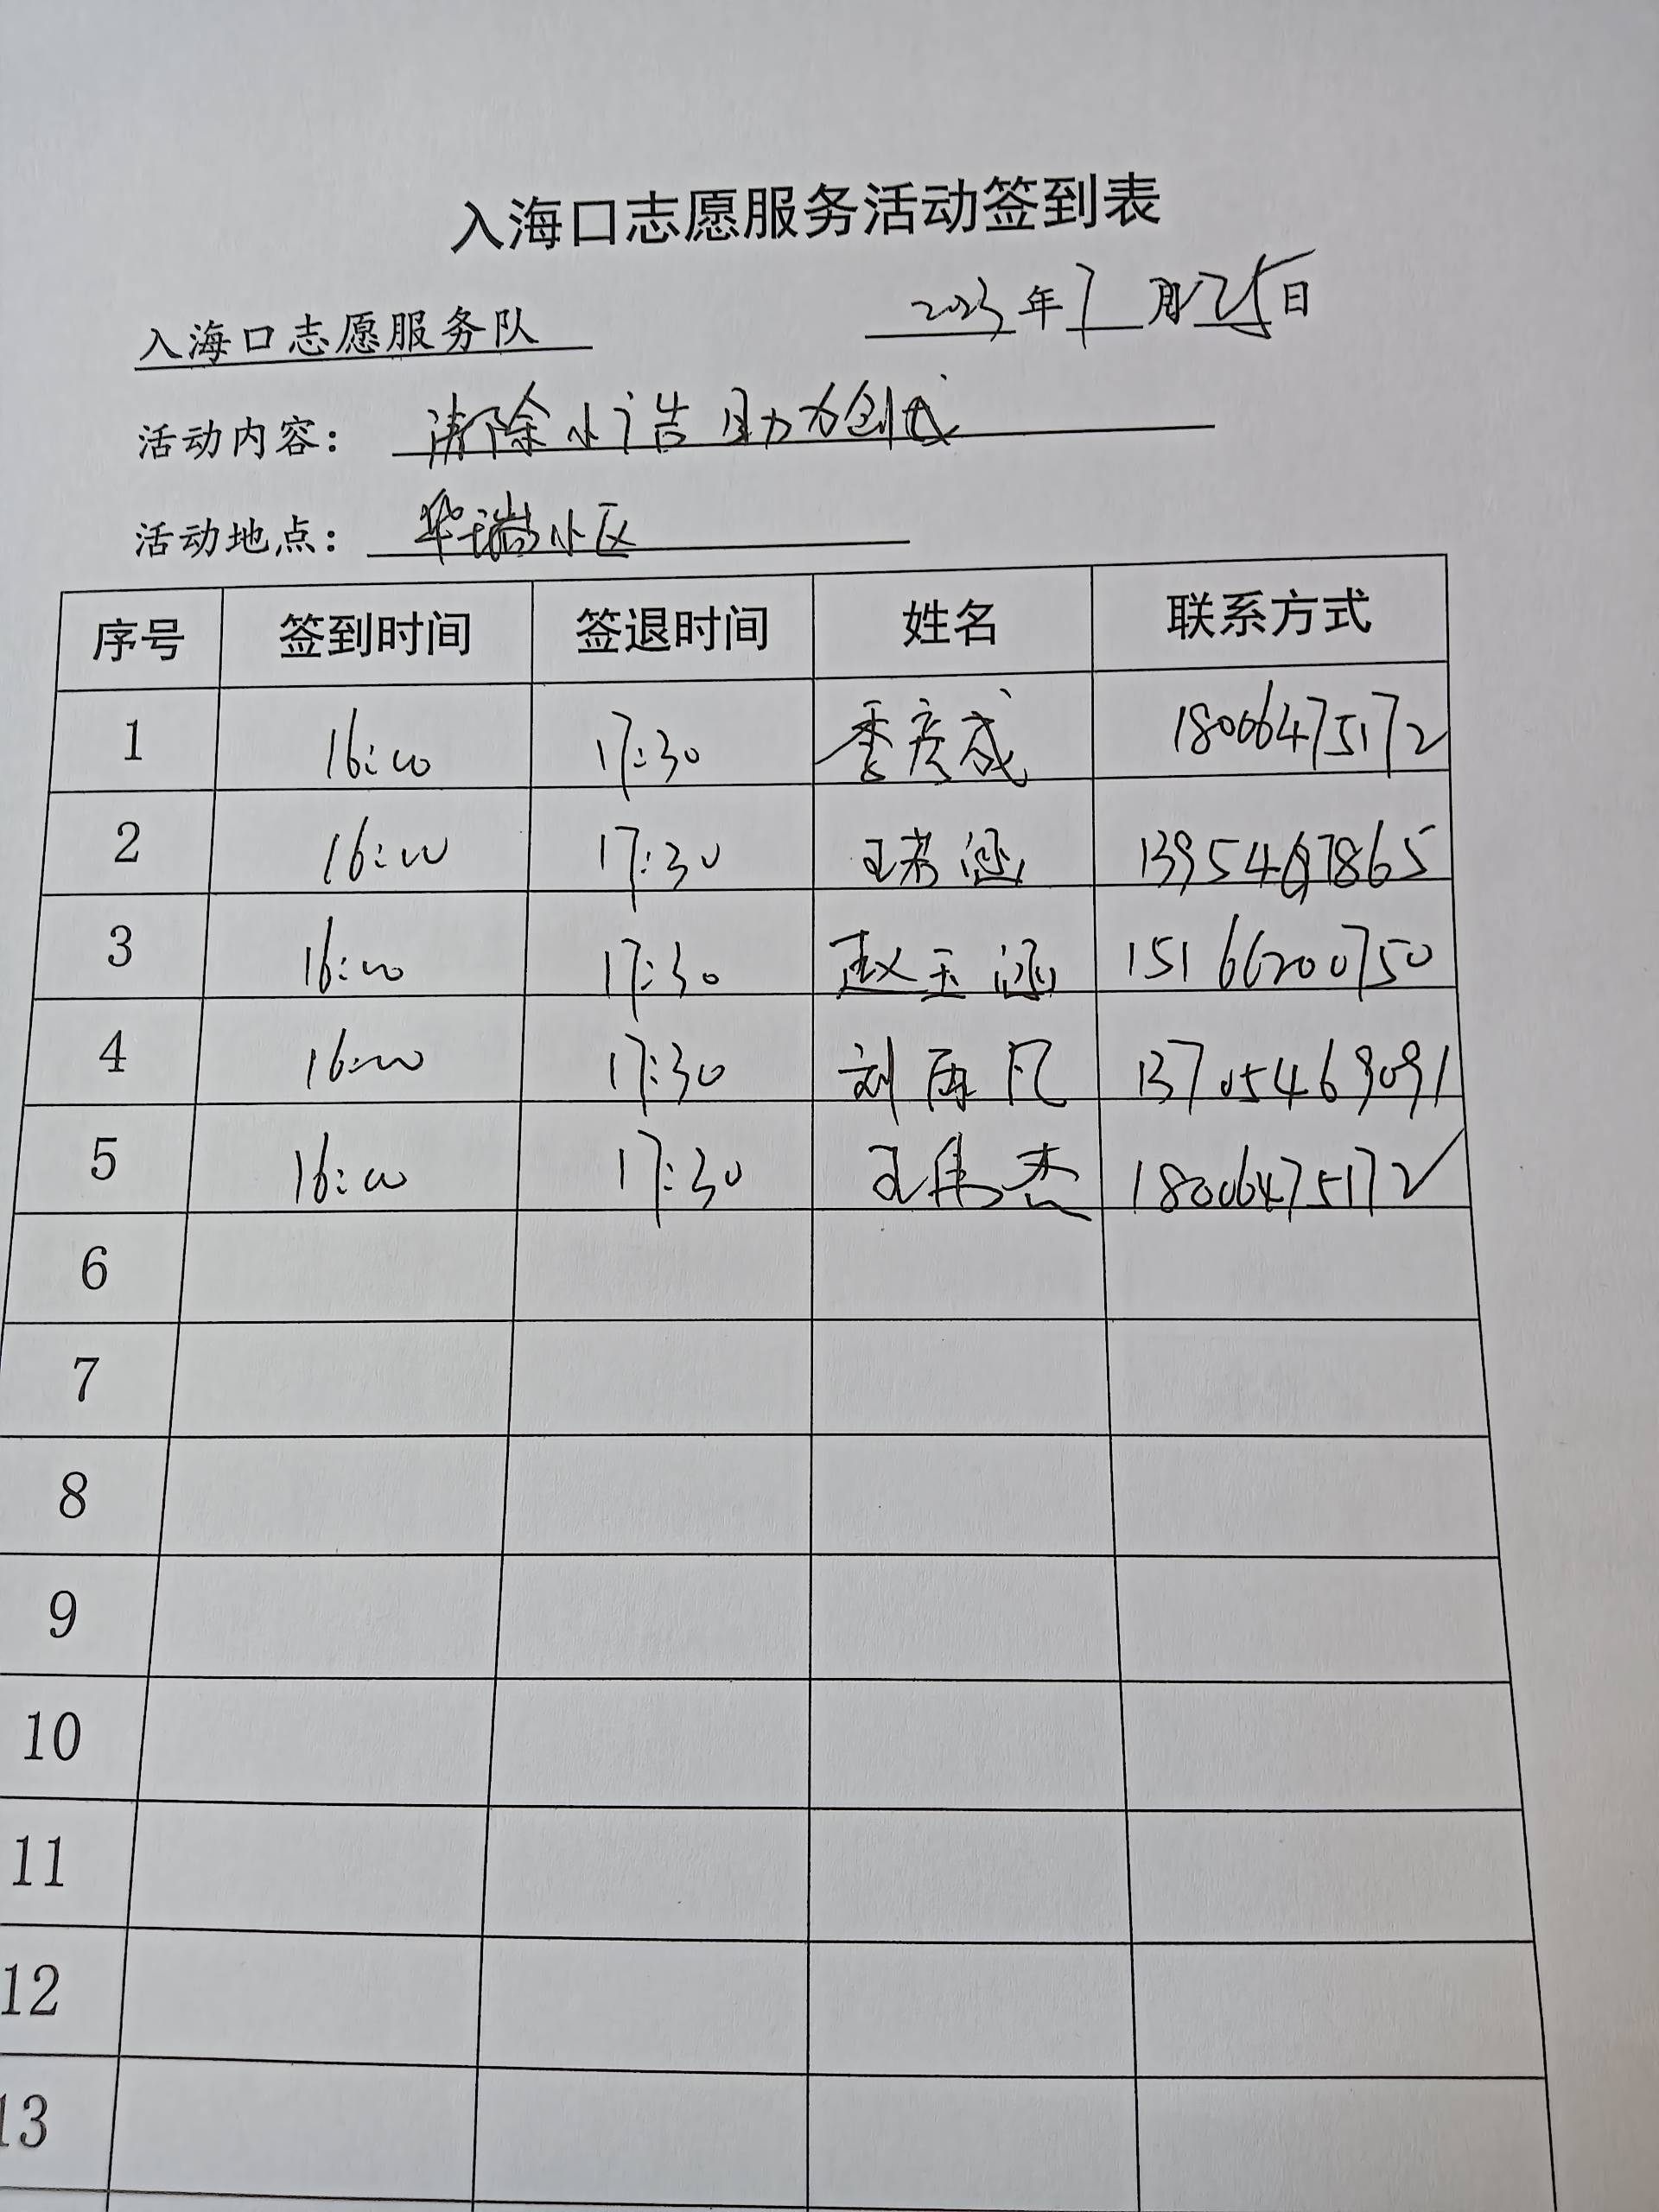 入海口志愿服务活动签到表
入海口志愿服务队 2023年7月25日
活动内容： 清除小广告 助力创城
活动地点： 华瑞小区
序号 签到时间 签退时间 姓名 联系方式
1 16:00 17:30 季彦成 18006475172
2 16:00 17:30 王若涵 13954697865
3 16:00 17:30 赵玉涵 15166200750
4 16:00 17:30 刘雨凡 13705469091
5 16:00 17:30 王伟杰 18006475172
6
7
8
9
10
11
12
13